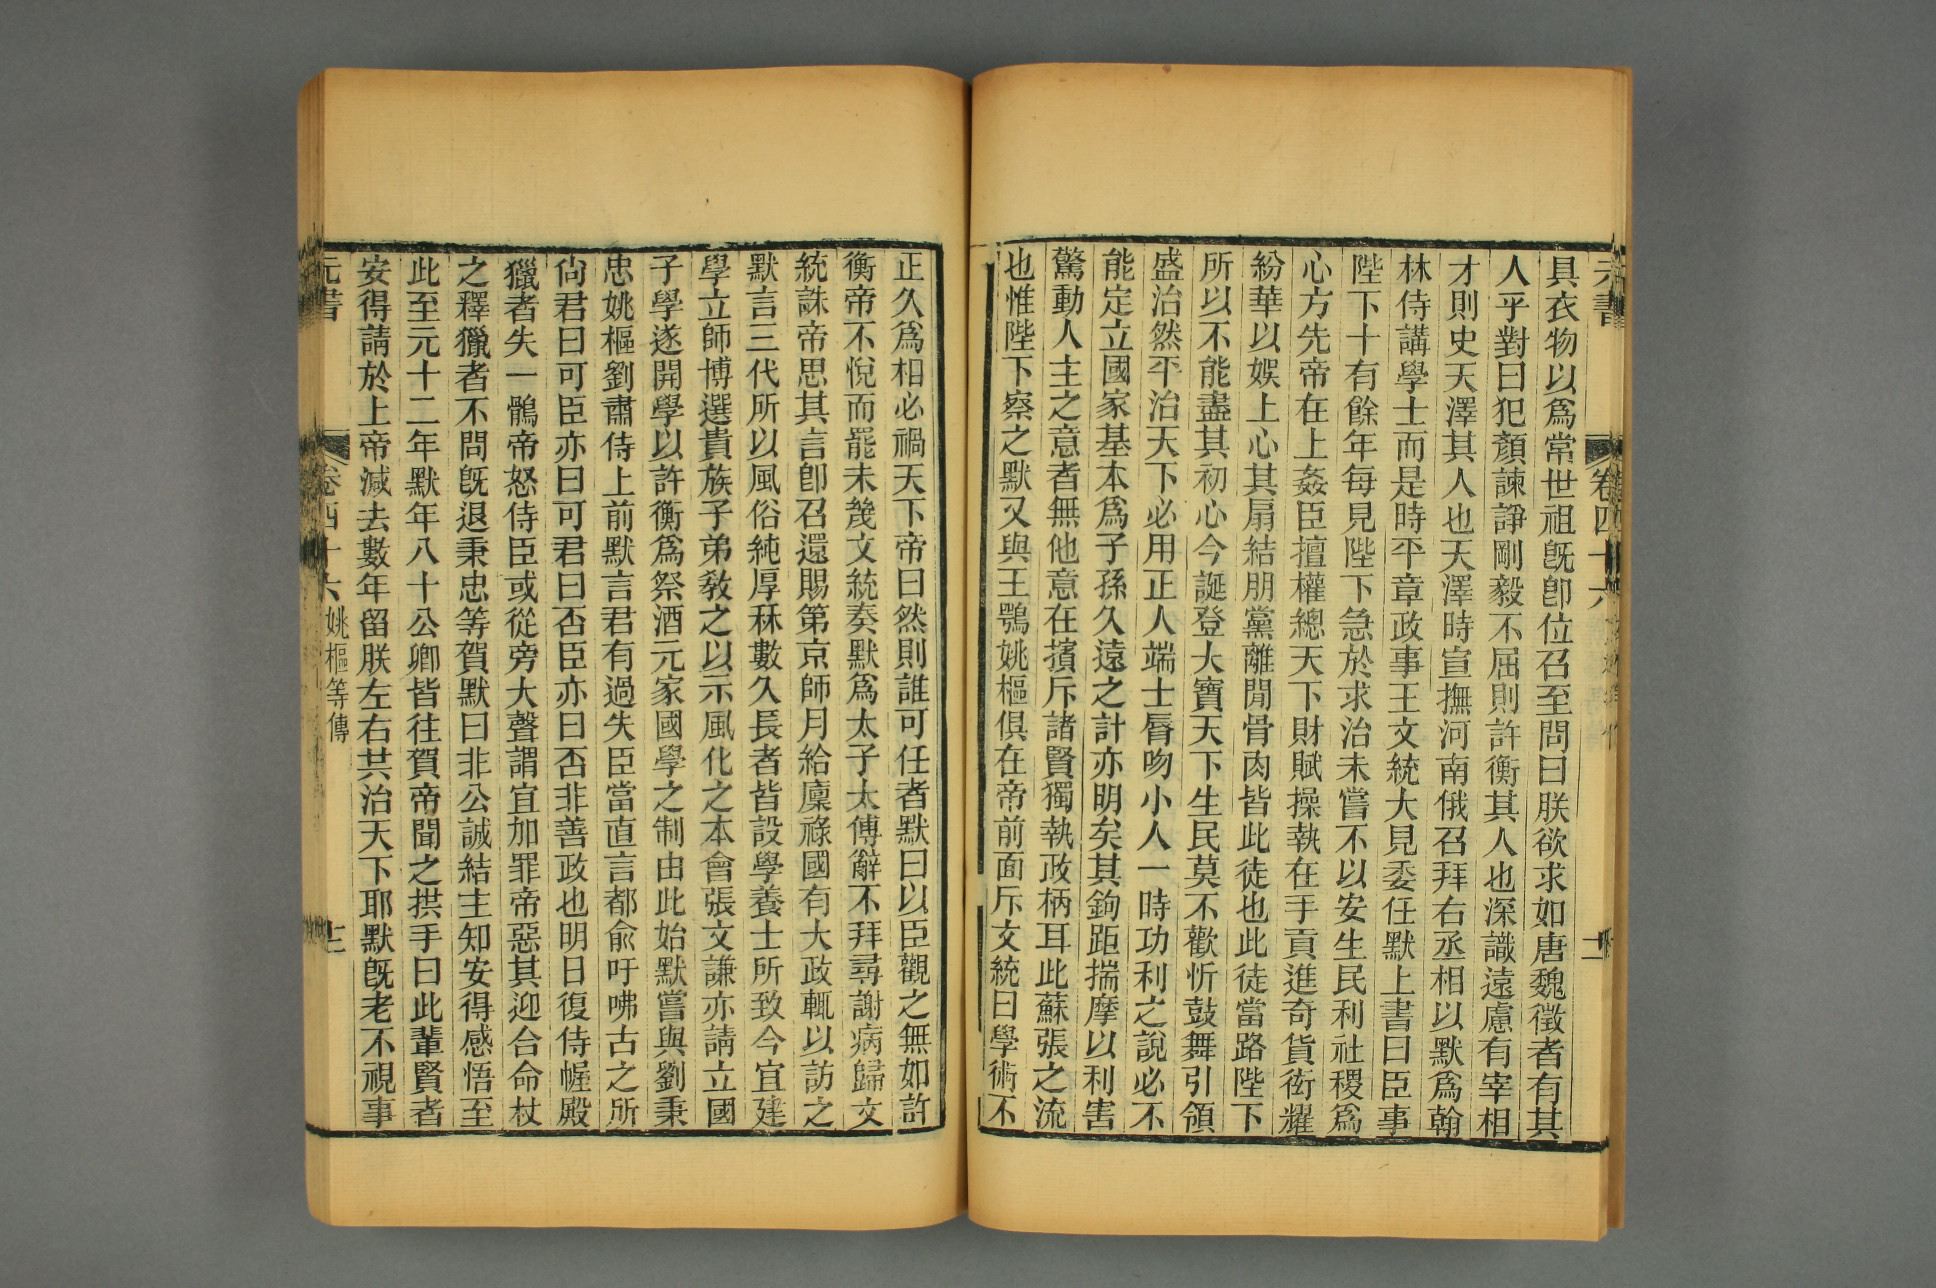 元書 卷四十六 二
具衣物以爲常世祖旣卽位召至問曰朕欲求如唐魏徵者有其
人乎對曰犯顏諫諍剛毅不屈則許衡其人也深識遠慮有宰相
才則史天澤其人也天澤時宣撫河南俄召拜右丞相以默爲翰
林侍講學士而是時平章政事王文統大見委任默上書曰臣事
陛下十有餘年每見陛下急於求治未嘗不以安生民利社稷爲
心方先帝在上姦臣擅權總天下財賦操執在手貢進奇貨衒耀
紛華以娛上心其扇結朋黨離閒骨肉皆此徒也此徒當路陛下
所以不能盡其初心今誕登大寶天下生民莫不歡忻鼓舞引領
盛治然平治天下必用正人端士脣吻小人一時功利之說必不
能定立國家基本爲子孫久遠之計亦明矣其鉤距揣摩以利害
驚動人主之意者無他意在擯斥諸賢獨執政柄耳此蘇張之流
也惟陛下察之默又與王鶚姚樞俱在帝前面斥文統曰學術不
正久爲相必禍天下帝曰然則誰可任者默曰以臣觀之無如許
衡帝不悅而罷未幾文統奏默爲太子太傅辭不拜尋謝病歸文
統誅帝思其言卽召還賜第京師月給廩祿國有大政輒以訪之
默言三代所以風俗純厚秝數久長者皆設學養士所致今宜建
學立師博選貴族子弟敎之以示風化之本會張文謙亦請立國
子學遂開學以許衡爲祭酒元家國學之制由此始默嘗與劉秉
忠姚樞劉肅侍上前默言君有過失臣當直言都俞吁咈古之所
尙君曰可臣亦曰可君曰否臣亦曰否非善政也明日復侍幄殿
獵者失一鶻帝怒侍臣或從旁大聲謂宜加罪帝惡其迎合命杖
之釋獵者不問旣退秉忠等賀默曰非公誠結主知安得感悟至
此至元十二年默年八十公卿皆往賀帝聞之拱手曰此輩賢者
安得請於上帝減去數年留朕左右共治天下耶默旣老不視事
元書 卷四十六 姚樞等傳